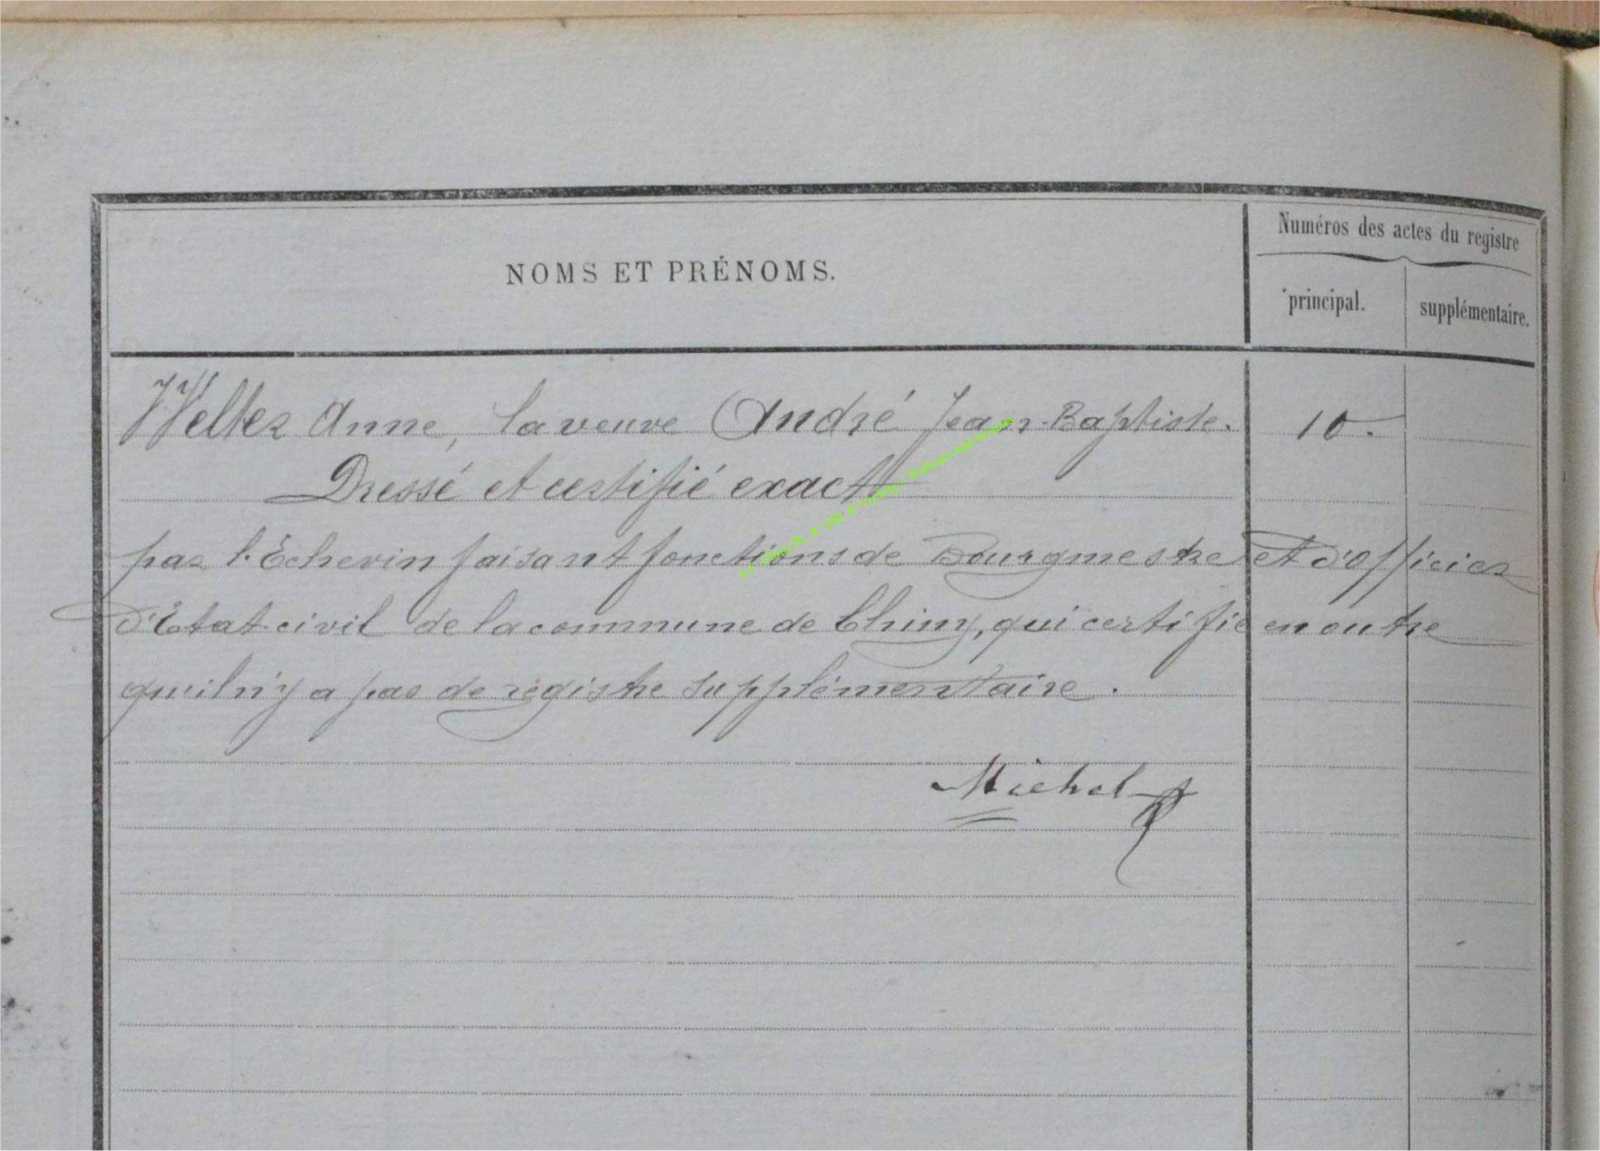 Numéros des actes du registre
NOMS ET PRÉNOMS.
principal.
supplémentaire.
Welter Anne, la veuve André Jean-Baptiste. 10.
Dressé et certifié exact
par l'Echevin faisant fonctions de Bourgmestre et d'officier
d'Etat civil de la commune de Chiny, qui certifie en outre
qu'il n'y a pas de régistre supplémentaire.
Michel